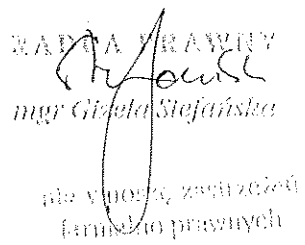 RADCA PRAWNY
mgr Gizela Stefańska
nie wnoszę zastrzeżeń
formalno prawnych